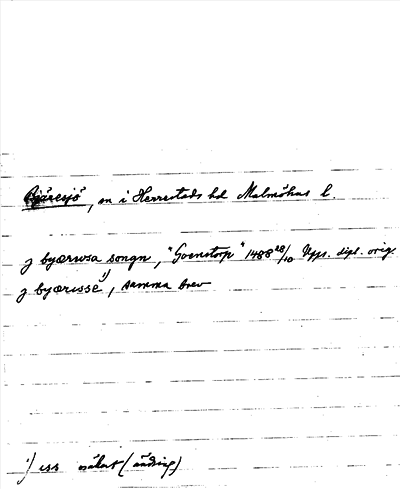 Bjäresjö, sn i Herrestads hd Malmöhus l.
j byærwsa songn, "Goenstorp" 1488 28/10 Upps. dipl. orig.
j byærissé 1), samma brev
1) iss oklart (ändring)